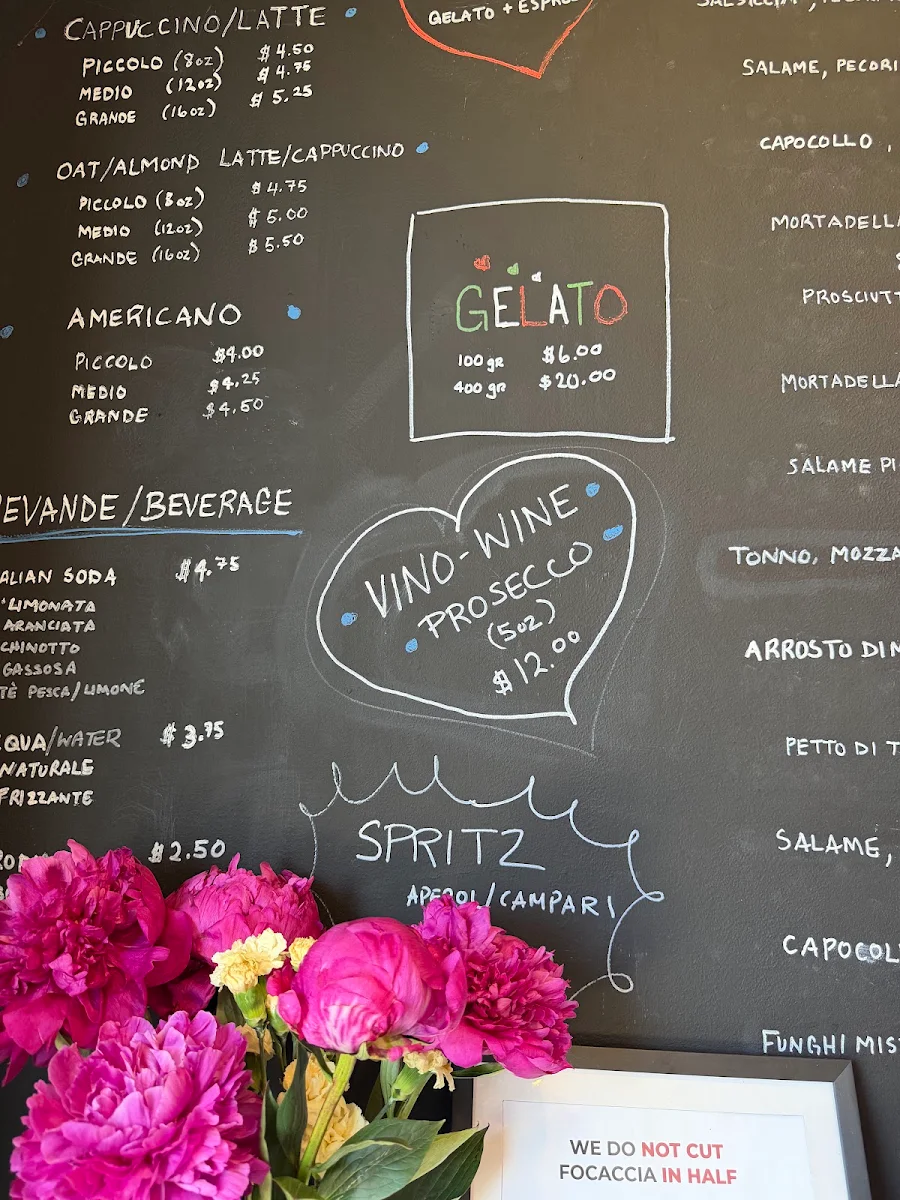 CAPPUCCINO/LATTE
PICCOLO (8oz) $4.50
MEDIO (12oz) $4.75
GRANDE (16oz) $5.25
OAT/ALMOND LATTE/CAPPUCCINO
PICCOLO (8oz) $4.75
MEDIO (12oz) $5.00
GRANDE (16oz) $5.50
AMERICANO
PICCOLO $4.00
MEDIO $4.25
GRANDE $4.50
EVANDE/BEVERAGE
ALIAN SODA $4.75
LIMONATA
ARANCIATA
CHINOTTO
GASSOSA
TÈ PESCA/LIMONE
QUA/WATER $3.75
NATURALE
FRIZZANTE
$2.50
GELATO + ESPRE
GELATO
100 gr $6.00
400 gr $20.00
VINO-WINE
PROSECCO
(5oz)
$12.00
SPRITZ
APEROL/CAMPARI
SALAME, PECORI
CAPOCOLLO,
MORTADELLA
PROSCIUTT
MORTADELLA
SALAME PI
TONNO, MOZZA
ARROSTO DI
PETTO DI T
SALAME,
CAPOCOL
FUNGHI MIS
WE DO NOT CUT
FOCACCIA IN HALF